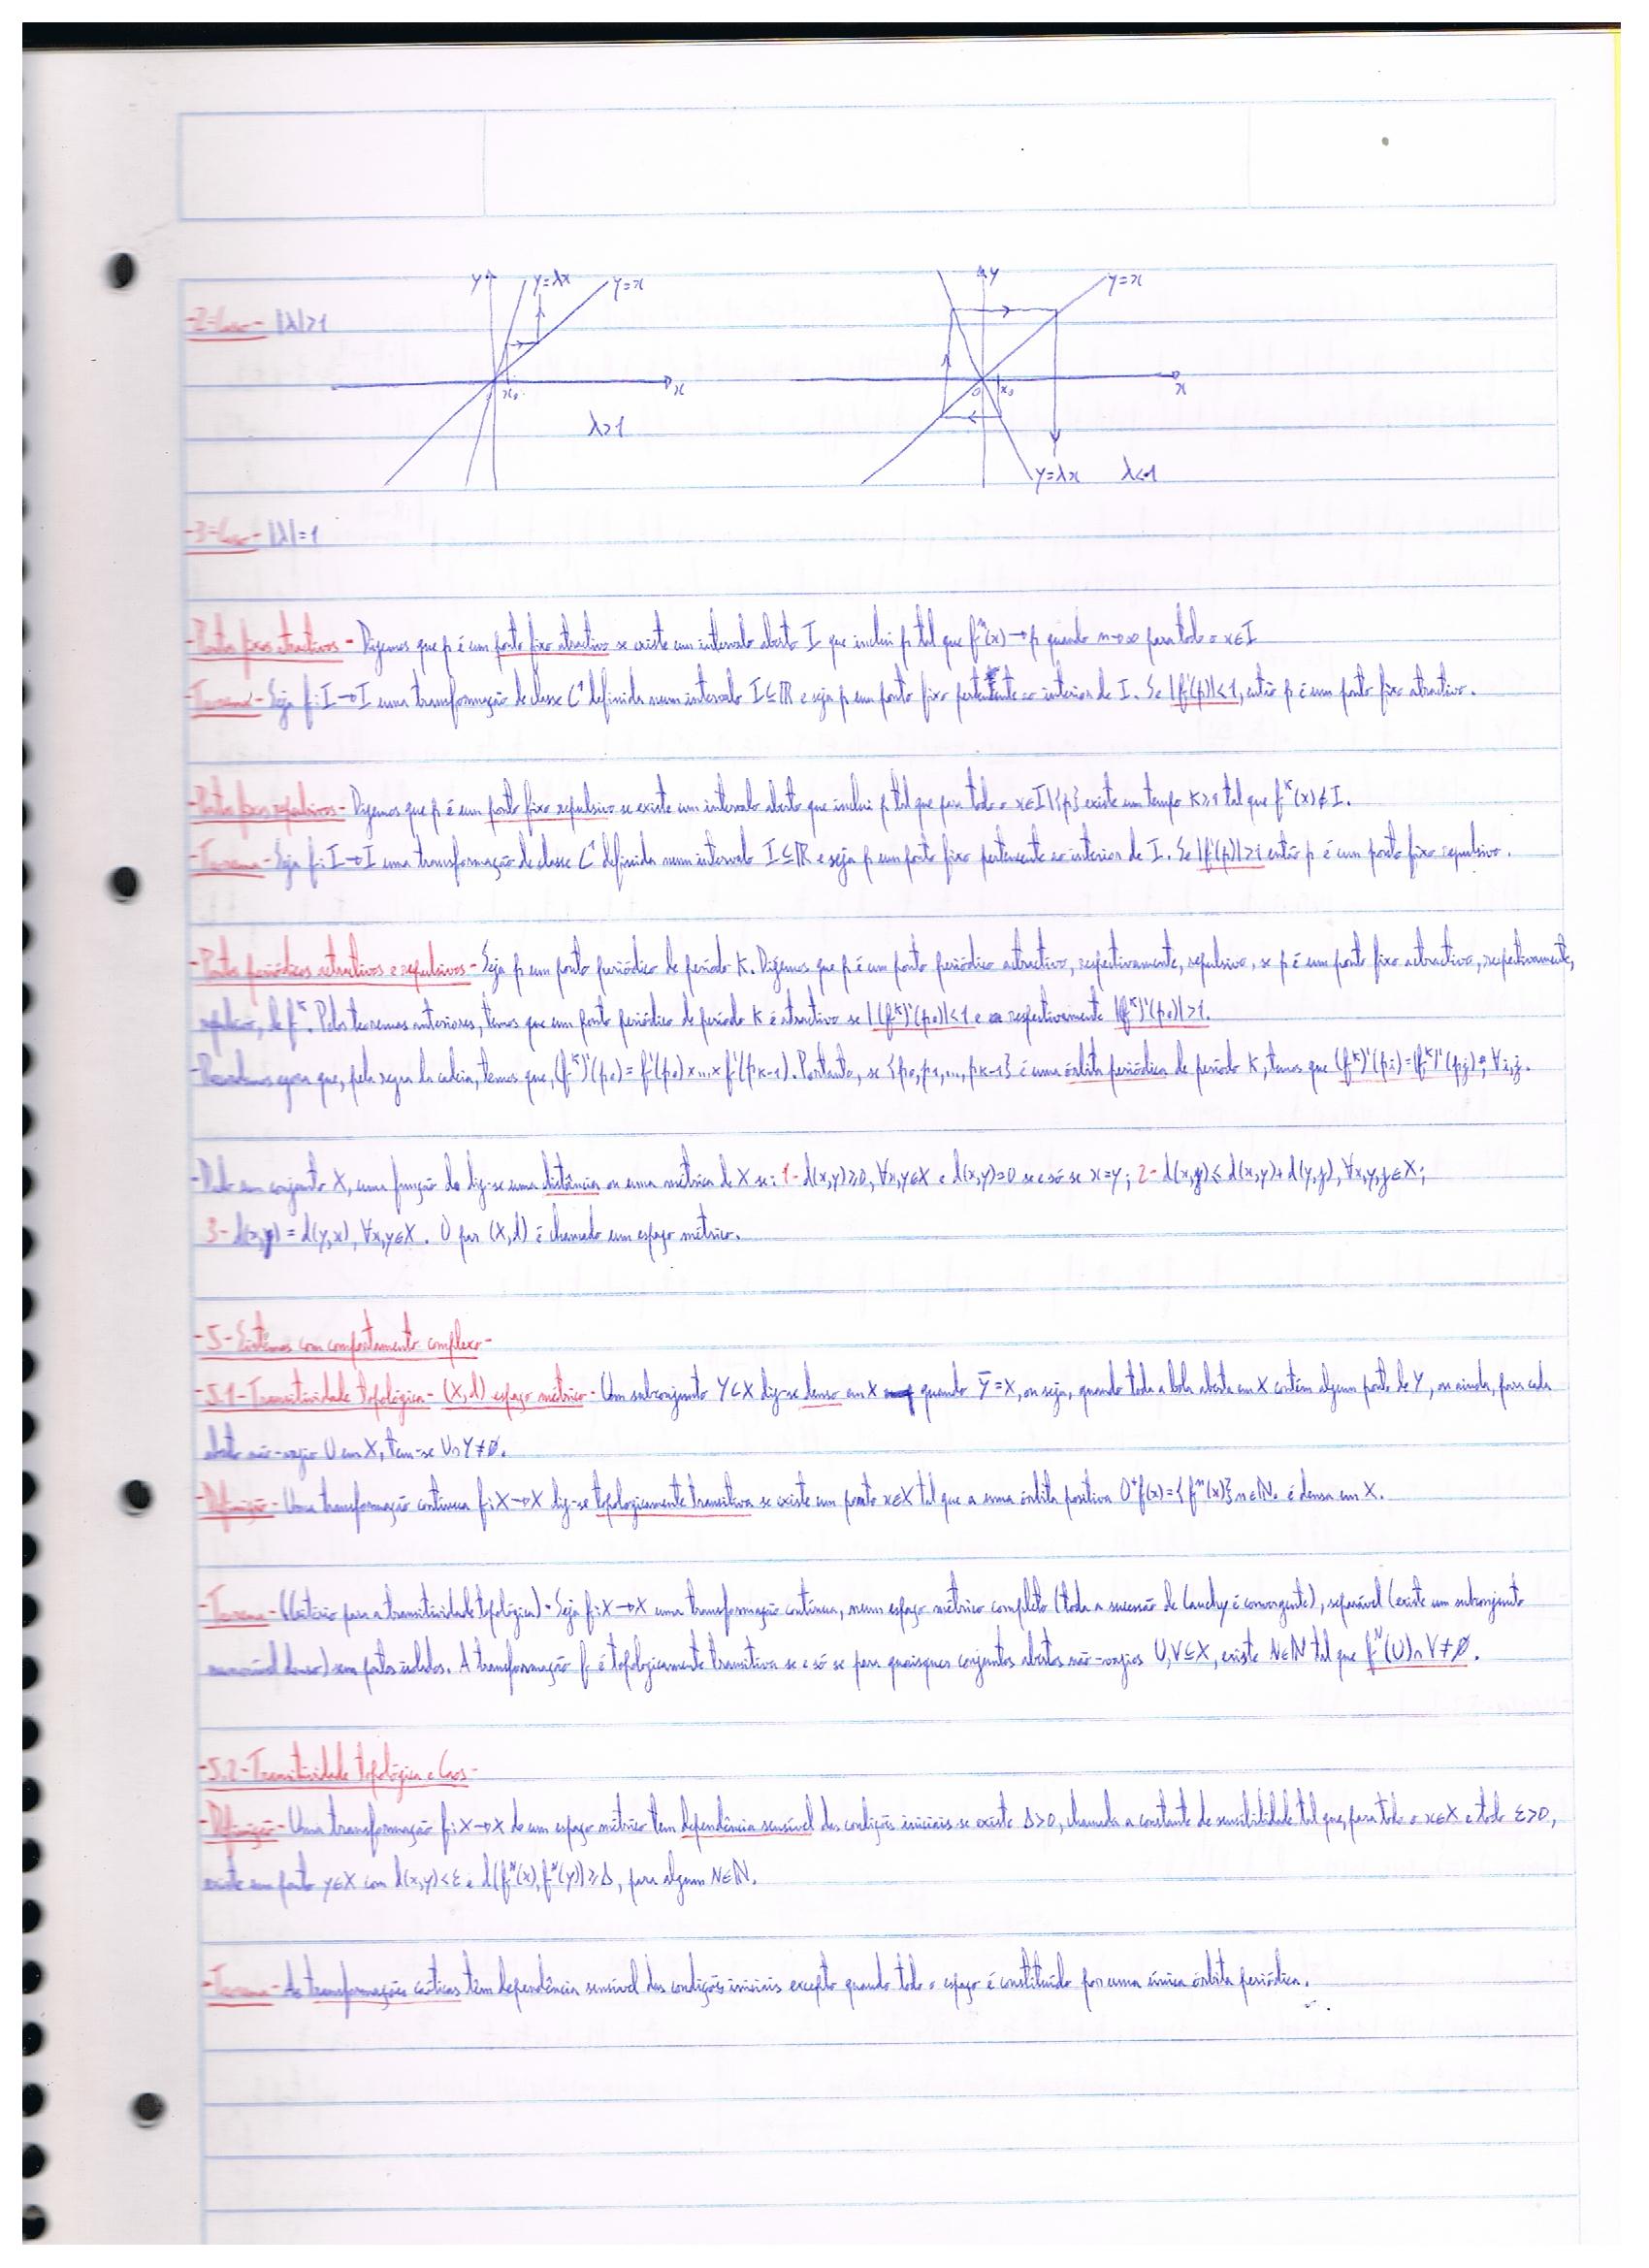 y y=λx y=x y y=x
-2º Caso- |λ|>1
x₀ x 0 x₀ x
λ>1
y=λx λ<-1
-3º Caso- |λ|=1
-Pontos fixos atractivos- Digamos que p é um ponto fixo atractivo se existe um intervalo aberto I que inclui p tal que fⁿ(x)→p quando n→∞ para todo o x∈I
-Teorema- Seja f:I→I uma transformação de classe C¹ definida num intervalo I⊆ℝ e seja p um ponto fixo pertencente ao interior de I. Se |f'(p)|<1, então p é um ponto fixo atractivo.
-Pontos fixos repulsivos- Digamos que p é um ponto fixo repulsivo se existe um intervalo aberto que inclui p tal que para todo o x∈I\{p} existe um tempo K≥1 tal que fᴷ(x)∉I.
-Teorema- Seja f:I→I uma transformação de classe C¹ definida num intervalo I⊆ℝ e seja p um ponto fixo pertencente ao interior de I. Se |f'(p)|>1 então p é um ponto fixo repulsivo.
-Pontos periódicos atractivos e repulsivos- Seja p um ponto periódico de período K. Digamos que p é um ponto periódico actractivo, respectivamente, repulsivo, se p é um ponto fixo actractivo, respetivamente,
repulsivo, de fᴷ. Pelos teoremas anteriores, temos que um ponto periódico de período K é atractivo se |(fᴷ)'(p₀)|<1 e respectivamente |(fᴷ)'(p₀)|>1.
agora que, pela regra da cadeia, temos que, (fᴷ)'(p₀)=f'(p₀)×...×f'(pK-1). Portanto, se {p₀,p₁,...,pK-1} é uma órbita periódica de período K, temos que (fᴷ)'(pi)=(fᴷ)'(pj), ∀i,j.
-Dado um conjunto X, uma função d diz-se uma distância ou uma métrica de X se: 1- d(x,y)≥0, ∀x,y∈X e d(x,y)=0 se e só se x=y; 2- d(x,z)≤d(x,y)+d(y,z), ∀x,y,z∈X;
3- d(x,y)=d(y,x), ∀x,y∈X. O par (X,d) é chamado um espaço métrico.
-5- Sistemas com comportamento complexo-
-5.1- Transitividade topológica- (X,d) espaço métrico- Um subconjunto Y⊂X diz-se denso em X quando Ȳ=X, ou seja, quando toda a bola aberta em X contém algum ponto de Y, ou ainda, para cada
aberto não-vazio U em X, tem-se U∩Y≠∅.
-Definição- Uma transformação contínua f:X→X diz-se topologicamente transitiva se existe um ponto x∈X tal que a sua órbita positiva O⁺f(x)={fⁿ(x)}n∈ℕ₀ é densa em X.
-Teorema- (Critério para a transitividade topológica)- Seja f:X→X uma transformação contínua, num espaço métrico completo (toda a sucessão de Cauchy é convergente), separável (existe um subconjunto
numerável denso) sem pontos isolados. A transformação f é topologicamente transitiva se e só se para quaisquer conjuntos abertos não-vazios U,V⊆X, existe N∈ℕ tal que fᴺ(U)∩V≠∅.
-5.2- Transitividade topológica e Caos-
-Definição- Uma transformação f:X→X de um espaço métrico tem dependência sensível das condições iniciais se existe Δ>0, chamada a constante de sensibilidade tal que, para todo o x∈X e todo ε>0,
existe um ponto y∈X com d(x,y)<ε e d(fᴺ(x),fᴺ(y))≥Δ, para algum N∈ℕ.
-Teorema- As transformações caóticas têm dependência sensível das condições iniciais excepto quando todo o espaço é constituído por uma única órbita periódica.